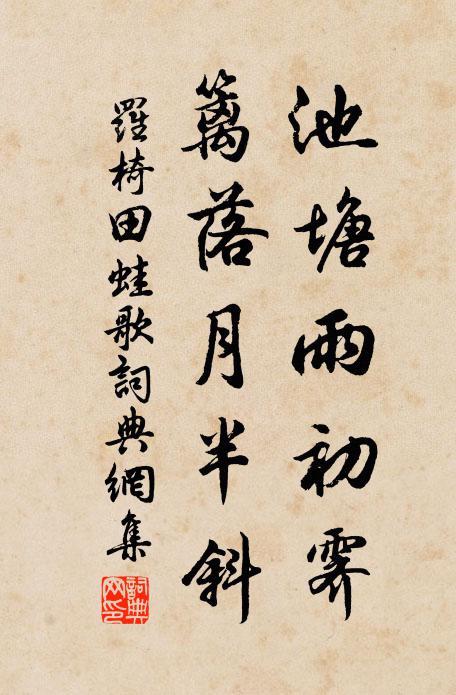 池塘雨初霽
籬落月半斜
羅椅田蛙歌詞典網集
詞典网印